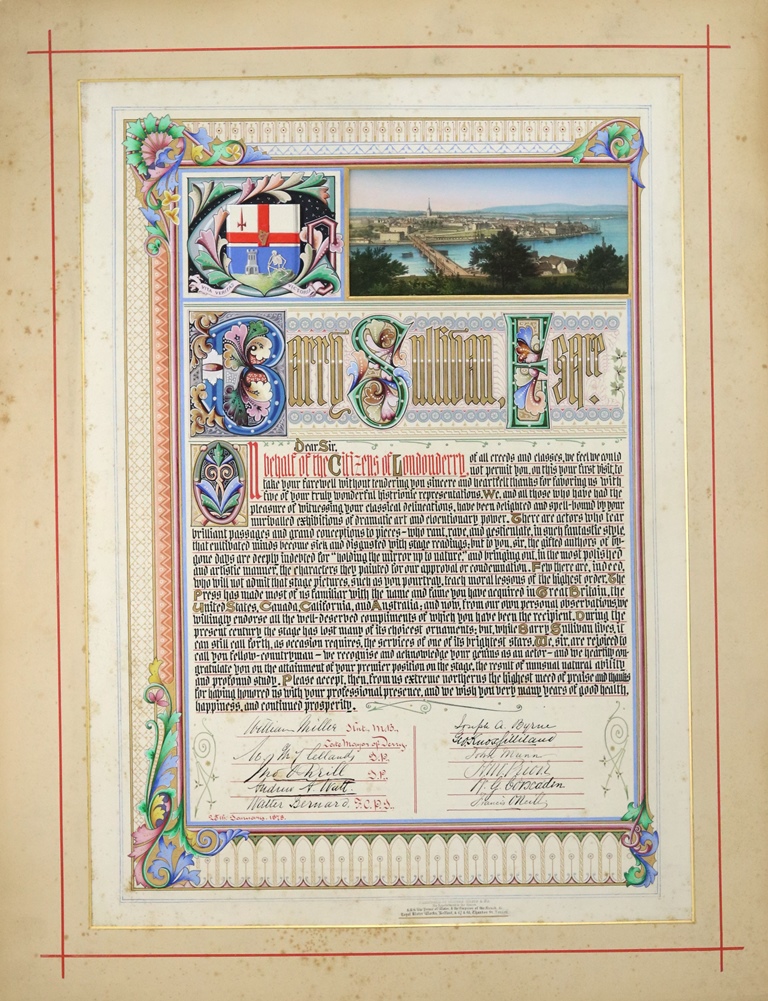 VITA VERITAS VICTORIA
Barry Sullivan, Esqre.
Dear Sir,
On behalf of the Citizens of Londonderry, of all creeds and classes, we feel we could
not permit you, on this your first visit, to
take your farewell without tendering you sincere and heartfelt thanks for favoring us with
five of your truly wonderful histrionic representations. We, and all those who have had the
pleasure of witnessing your classical delineations, have been delighted and spell-bound by your
unrivalled exhibitions of dramatic art and elocutionary power. There are actors who tear
brilliant passages and grand conceptions to pieces – who rant, rave, and gesticulate, in such fantastic style,
that cultivated minds become sick and disgusted with stage readings; but to you, sir, the gifted authors of by-
gone days are deeply indebted for "holding the mirror up to nature," and bringing out, in the most polished
and artistic manner, the characters they painted for our approval or condemnation. Few there are, indeed,
who will not admit that stage pictures, such as you pourtray, teach moral lessons of the highest order. The
Press has made most of us familiar with the name and fame you have acquired in Great Britain, the
United States, Canada, California, and Australia; and now, from our own personal observations, we
willingly endorse all the well-deserved compliments of which you have been the recipient. During the
present century the stage has lost many of its choicest ornaments; but, while Barry Sullivan lives, it
can still call forth, as occasion requires, the services of one of its brightest stars. We, sir, are rejoiced to
call you fellow-countryman – we recognise and acknowledge your genius as an actor – and we heartily con-
gratulate you on the attainment of your premier position on the stage, the result of unusual natural ability
and profound study. Please accept, then, from us extreme northerns the highest meed of praise and thanks
for having honored us with your professional presence, and we wish you very many years of good health,
happiness, and continued prosperity.
William Miller Knt., M.D.,
Late Mayor of Derry.
J.P.
O'Neill J.P.
Andrew A Watt.
Walter Bernard. F.C.P.I.
25th January, 1878.
Joseph A. Byrne
Geo Knox Gilliland
John Munn
Francis O'Neill
Royal Ulster Works, Belfast